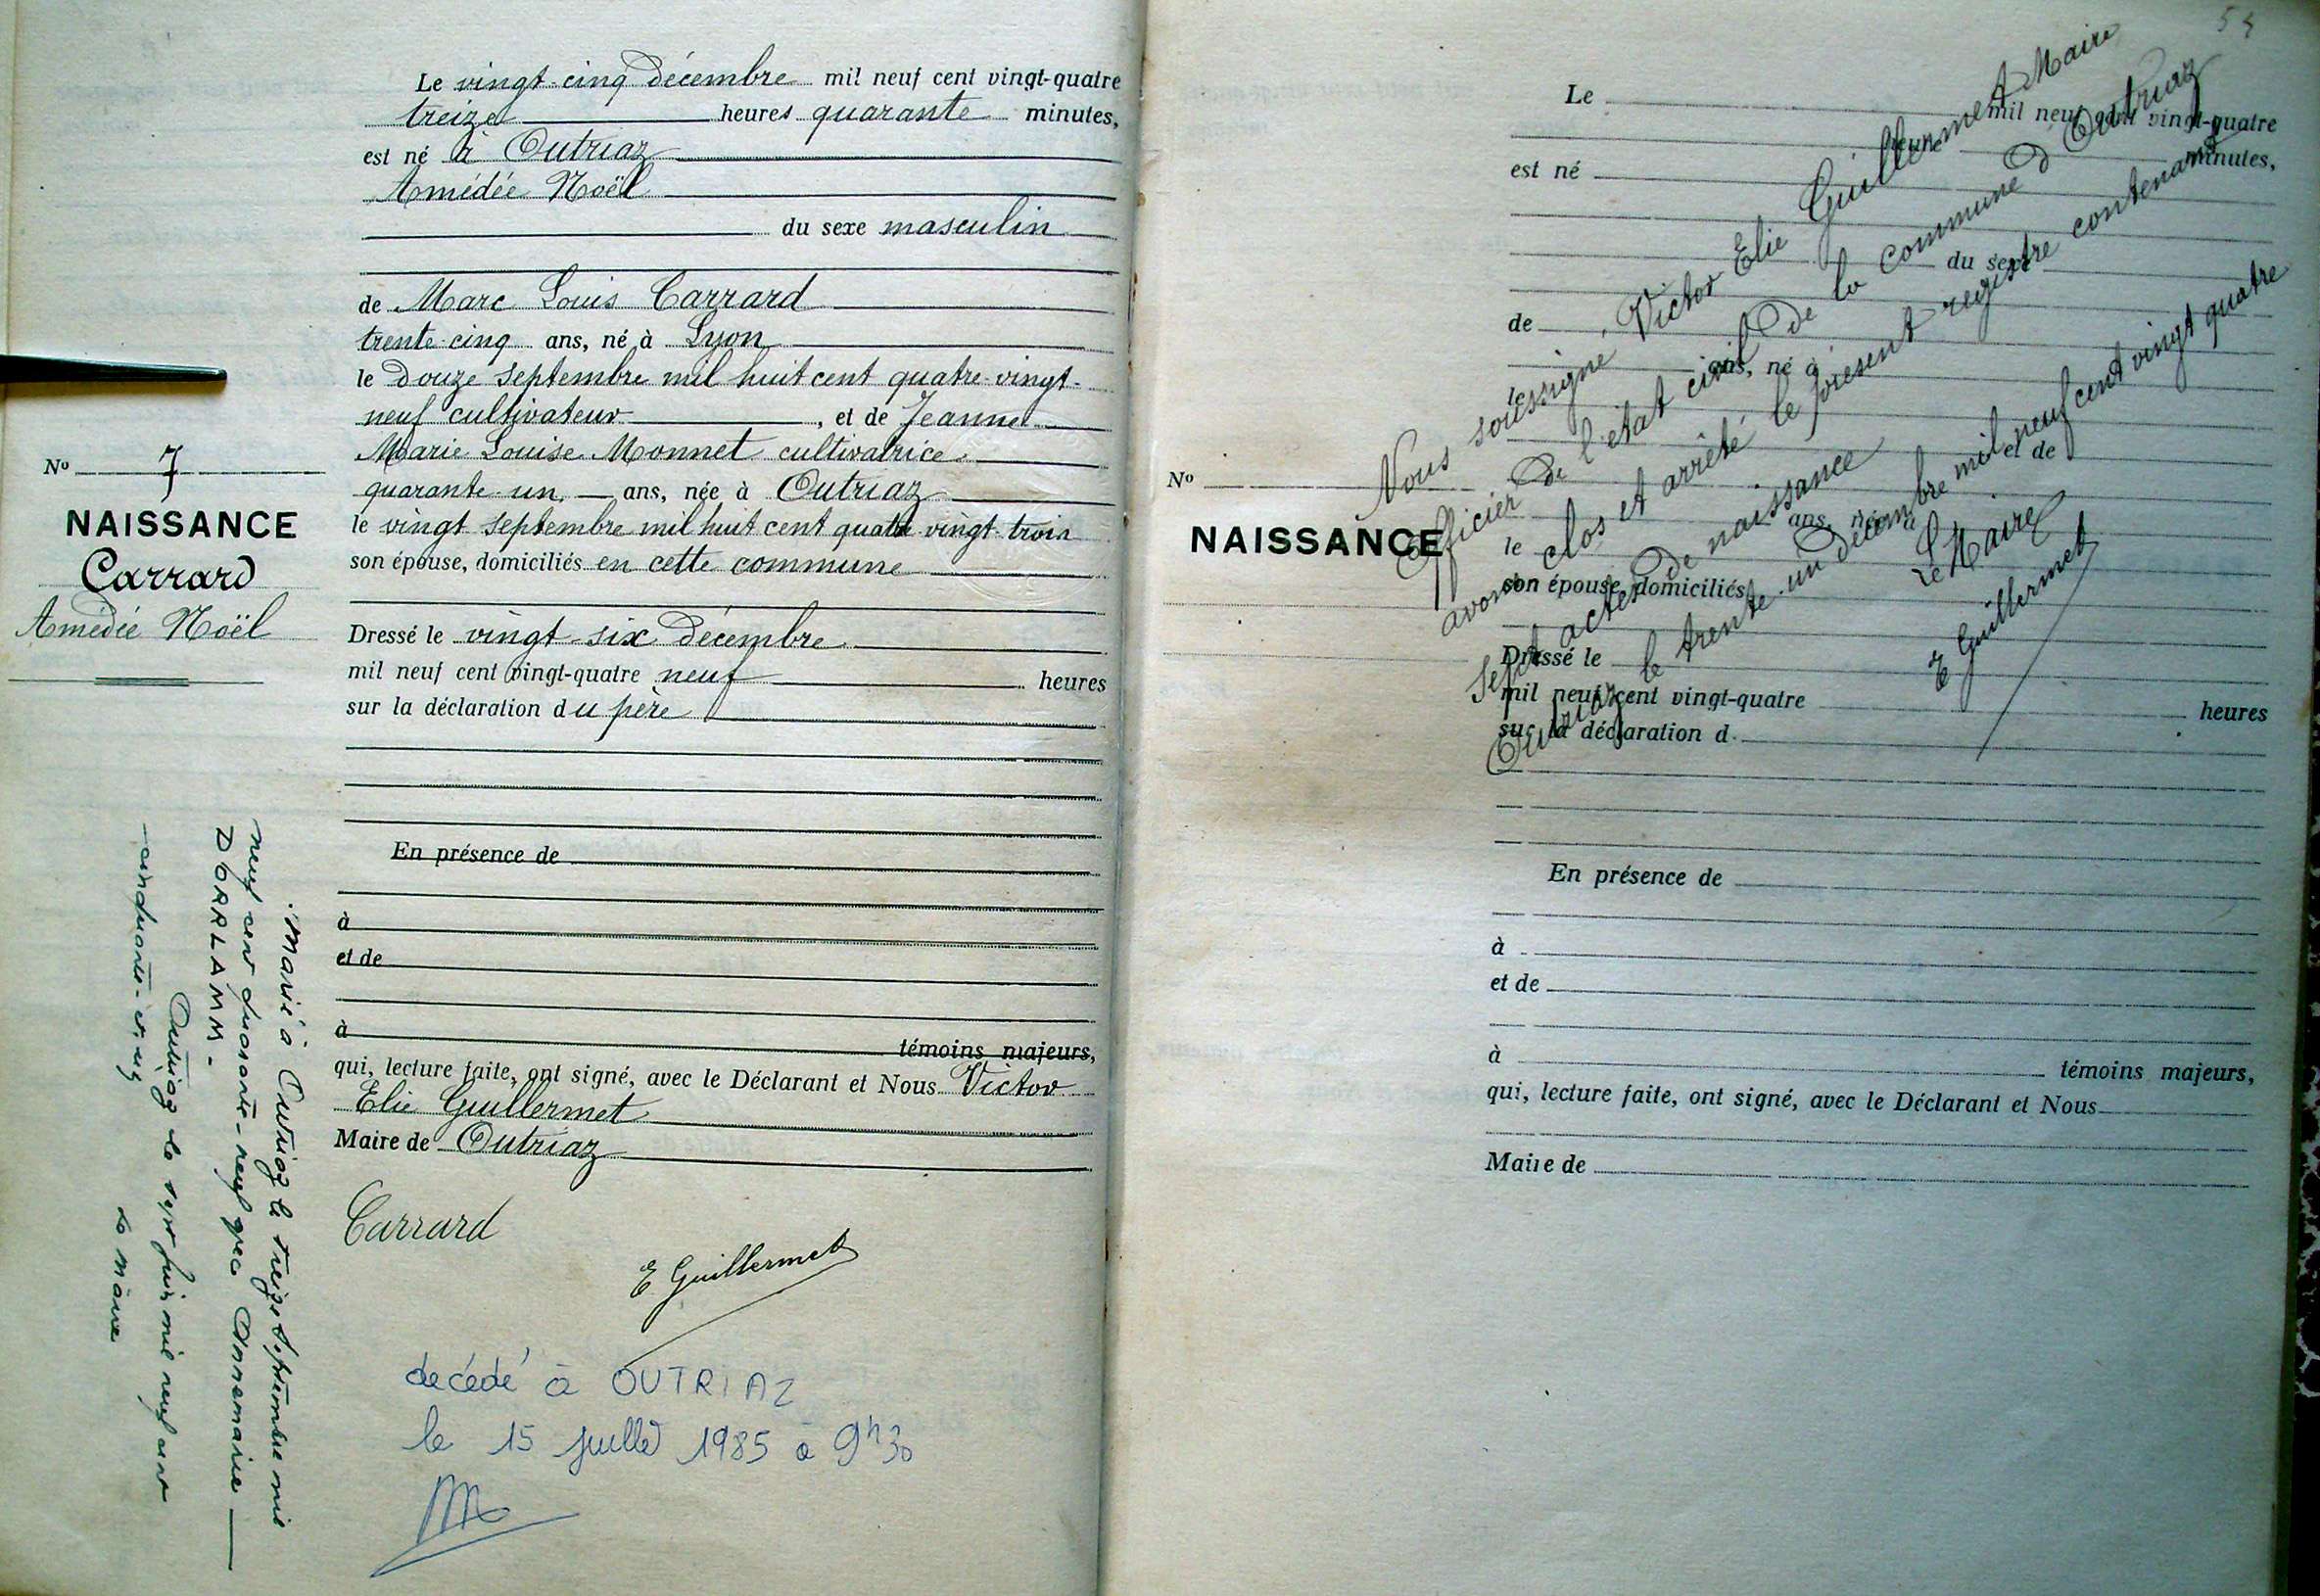 Le vingt-cinq décembre mil neuf cent vingt-quatre
treize heures quarante minutes,
est né à Outriaz
Amédée Noël
du sexe masculin
de Marc Louis Carrard
trente-cinq ans, né à Lyon
le douze septembre mil huit cent quatre-vingt-
neuf cultivateur, et de Jeanne
Marie Louise Monnet cultivatrice
quarante-un ans, née à Outriaz
le vingt septembre mil huit cent quatre-vingt-trois
son épouse, domiciliés en cette commune
Dressé le vingt-six décembre
mil neuf cent vingt-quatre neuf heures
sur la déclaration du père
En présence de
à
et de
à
témoins majeurs,
qui, lecture faite, ont signé, avec le Déclarant et Nous Victor
Elie Guillermet
Maire de Outriaz
Carrard
E Guillermet
decédé à OUTRIAZ
le 15 juillet 1985 à 9h30
No 7
NAISSANCE
Carrard
Amédée Noël
Marié à Outriaz le treize septembre mil
neuf cent quarante-neuf avec Annemarie
DORRLAMM-
Outriaz le sept juin mil neuf cent
cinquante-
Le Maire
54
Le mil neuf cent vingt-quatre
heures minutes,
est né
du sexe
de
ans, né à
le
et de
ans, née à
le
son épouse, domiciliés
Dressé le
mil neuf cent vingt-quatre heures
sur la déclaration d
En présence de
à
et de
à
témoins majeurs,
qui, lecture faite, ont signé, avec le Déclarant et Nous
Maire de
No
NAISSANCE
Nous soussigné, Victor Elie Guillermet Maire
Officier de l'état civil de la commune d'Outriaz
avons clos et arrêté le présent registre contenant
sept actes de naissance
Outriaz le trente-un décembre mil neuf cent vingt quatre
Le Maire
E Guillermet